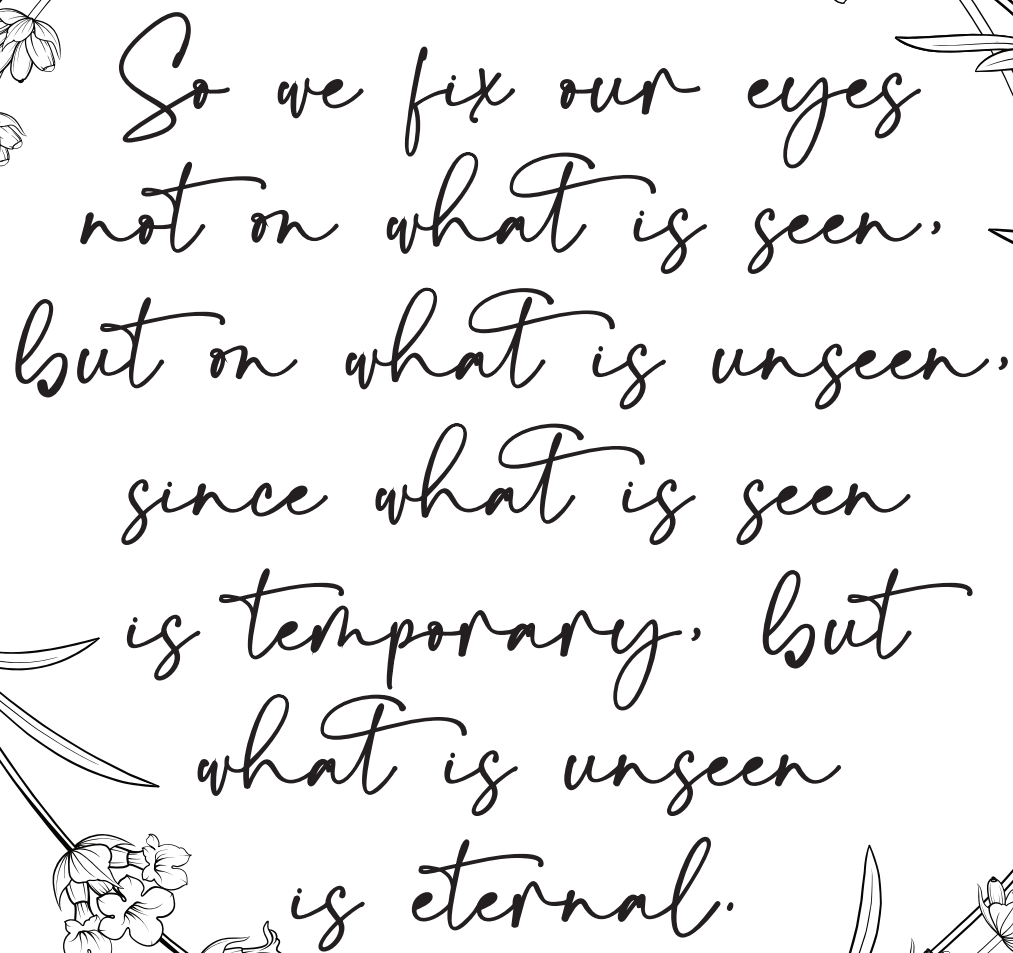 So we fix our eyes
not on what is seen,
but on what is unseen,
since what is seen
is temporary, but
what is unseen
is eternal.